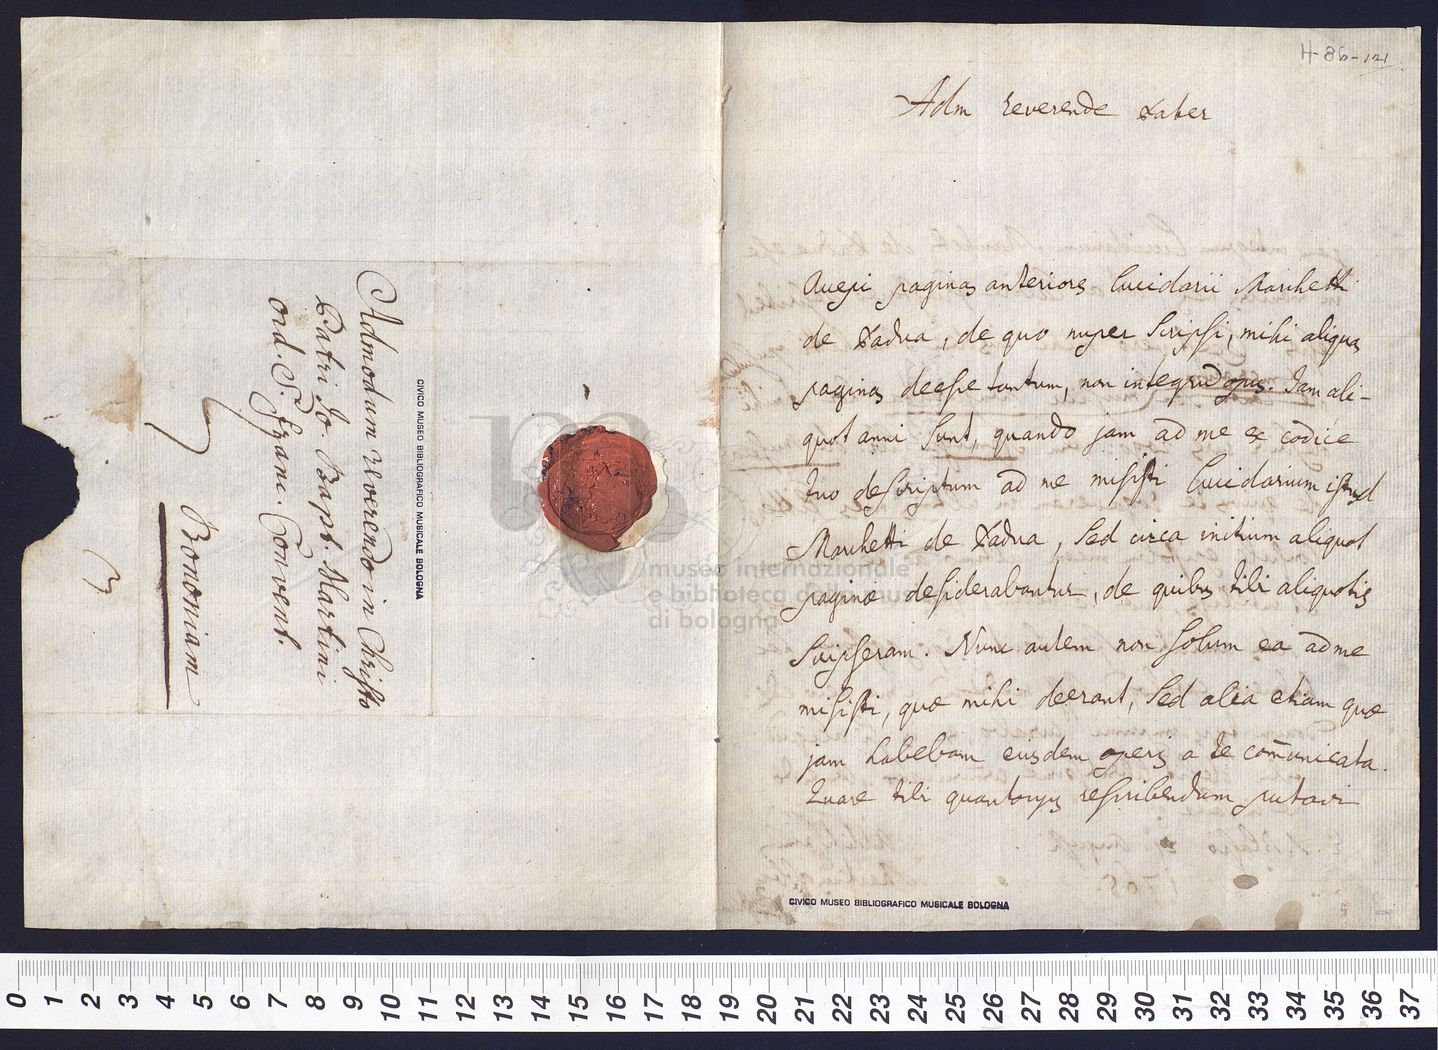 H-86-121
Adm reverende Pater
Accepi paginas anteriores Lucidarii Marchetti
de Padua, de quo nuper scripsi, mihi aliquas
paginas deesse tantum, non integrũ opus. Jam ali-
quot anni sunt, quando jam ad me ex codice
tuo descriptum ad me misisti Lucidarium istud
Marchetti de Padua, sed circa initium aliquot
paginæ desiderabantur, de quibus tibi aliquotis
scripseram. Nunc autem non solum ea ad me
misisti, quæ mihi deerant, sed alia etiam quæ
jam habebam eiusdem operis a te com̃unicata.
Quare tibi quantocyus rescribendum putavi
CIVICO MUSEO BIBLIOGRAFICO MUSICALE BOLOGNA
Admodum Reverendo in Christo
Patri Jo. Bapt. Martini
ord. S. Franc. Convent.
Bononiam
CIVICO MUSEO BIBLIOGRAFICO MUSICALE BOLOGNA
museo internazionale
e biblioteca della musica
di bologna
0 1 2 3 4 5 6 7 8 9 10 11 12 13 14 15 16 17 18 19 20 21 22 23 24 25 26 27 28 29 30 31 32 33 34 35 36 37